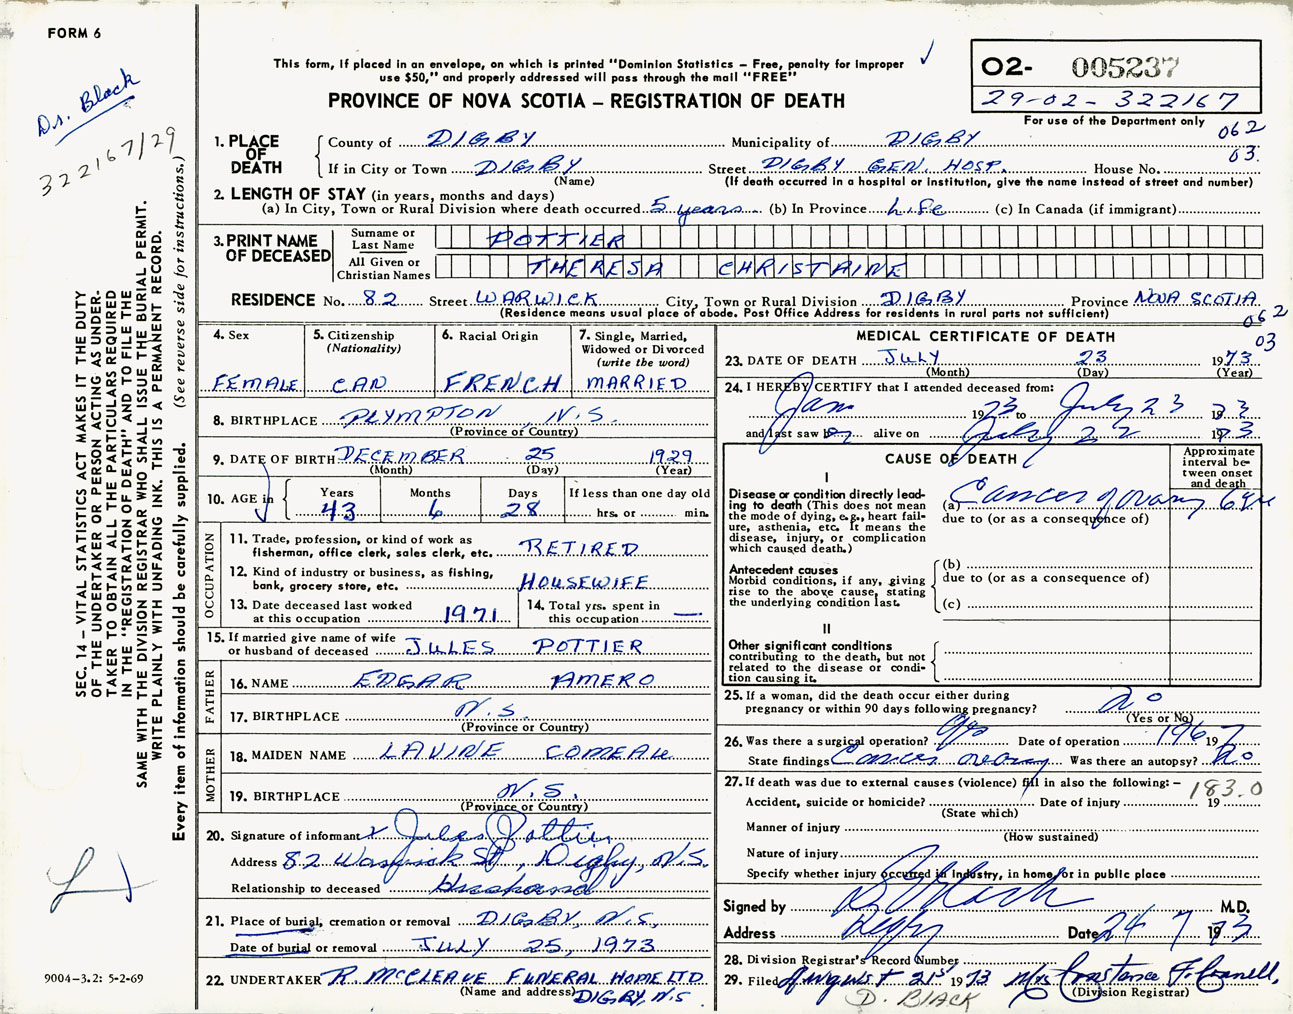 FORM 6
Dr. Black
322167/29
SEC. 14 – VITAL STATISTICS ACT MAKES IT THE DUTY
OF THE UNDERTAKER OR PERSON ACTING AS UNDER-
TAKER TO OBTAIN ALL THE PARTICULARS REQUIRED
IN THE "REGISTRATION OF DEATH" AND TO FILE THE
SAME WITH THE DIVISION REGISTRAR WHO SHALL ISSUE THE BURIAL PERMIT.
WRITE PLAINLY WITH UNFADING INK. THIS IS A PERMANENT RECORD.
Every item of information should be carefully supplied. (See reverse side for instructions.)
9004–3.2: 5-2-69
This form, if placed in an envelope, on which is printed "Dominion Statistics – Free, penalty for improper
use $50," and properly addressed will pass through the mail "FREE"
PROVINCE OF NOVA SCOTIA – REGISTRATION OF DEATH
02- 005237
29-02-322167
For use of the Department only
062
03
1. PLACE OF DEATH County of DIGBY Municipality of DIGBY
If in City or Town DIGBY Street DIGBY GEN. HOSP. House No.
(Name) (If death occurred in a hospital or institution, give the name instead of street and number)
2. LENGTH OF STAY (in years, months and days)
(a) In City, Town or Rural Division where death occurred 5 years (b) In Province Life (c) In Canada (if immigrant)
3. PRINT NAME OF DECEASED Surname or Last Name POTTIER
All Given or Christian Names THERESA CHRISTAINE
RESIDENCE No. 82 Street WARWICK City, Town or Rural Division DIGBY Province NOVA SCOTIA
(Residence means usual place of abode. Post Office Address for residents in rural parts not sufficient)
062
03
4. Sex FEMALE
5. Citizenship (Nationality) CAN
6. Racial Origin FRENCH
7. Single, Married, Widowed or Divorced (write the word) MARRIED
8. BIRTHPLACE PLYMPTON, N.S.
(Province or Country)
9. DATE OF BIRTH DECEMBER 25 1929
(Month) (Day) (Year)
10. AGE in Years 43 Months 6 Days 28 If less than one day old
hrs. or min.
OCCUPATION
11. Trade, profession, or kind of work as
fisherman, office clerk, sales clerk, etc. RETIRED
12. Kind of industry or business, as fishing,
bank, grocery store, etc. HOUSEWIFE
13. Date deceased last worked at this occupation 1971
14. Total yrs. spent in this occupation —
15. If married give name of wife
or husband of deceased JULES POTTIER
FATHER
16. NAME EDGAR AMERO
17. BIRTHPLACE N.S.
(Province or Country)
MOTHER
18. MAIDEN NAME LAVINE COMEAU
19. BIRTHPLACE N.S.
(Province or Country)
20. Signature of informant x Jules Pottier
Address 82 Warwick St, Digby, N.S.
Relationship to deceased Husband
21. Place of burial, cremation or removal DIGBY, N.S.
Date of burial or removal JULY 25, 1973
22. UNDERTAKER R. MCCLEAVE FUNERAL HOME LTD
(Name and address) DIGBY, N.S.
MEDICAL CERTIFICATE OF DEATH
23. DATE OF DEATH JULY 23 1973
(Month) (Day) (Year)
24. I HEREBY CERTIFY that I attended deceased from:
Jan 1973 to July 23 1973
and last saw h alive on July 22 1973
CAUSE OF DEATH
Approximate interval between onset and death
I
Disease or condition directly lead-
ing to death (This does not mean
the mode of dying, e.g., heart fail-
ure, asthenia, etc. It means the
disease, injury, or complication
which caused death.)
(a) Cancer of ovary 6 yrs
due to (or as a consequence of)
Antecedent causes
Morbid conditions, if any, giving
rise to the above cause, stating
the underlying condition last.
(b)
due to (or as a consequence of)
(c)
II
Other significant conditions
contributing to the death, but not
related to the disease or condi-
tion causing it.
25. If a woman, did the death occur either during
pregnancy or within 90 days following pregnancy? no
(Yes or No)
26. Was there a surgical operation? yes Date of operation 1967 19
State findings Cancer ovary Was there an autopsy? no
27. If death was due to external causes (violence) fill in also the following: –
183.0
Accident, suicide or homicide? Date of injury 19
(State which)
Manner of injury
(How sustained)
Nature of injury
Specify whether injury occurred in Industry, in home, or in public place
Signed by D Black M.D.
Address Digby Date 24 7 1973
28. Division Registrar's Record Number
29. Filed August 21st 1973 Mrs Constance F.
(Division Registrar)
D. BLACK